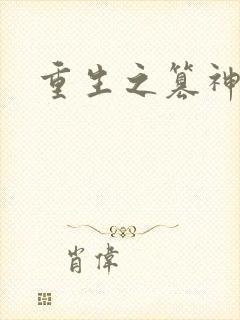 重生之篡神
肖偉